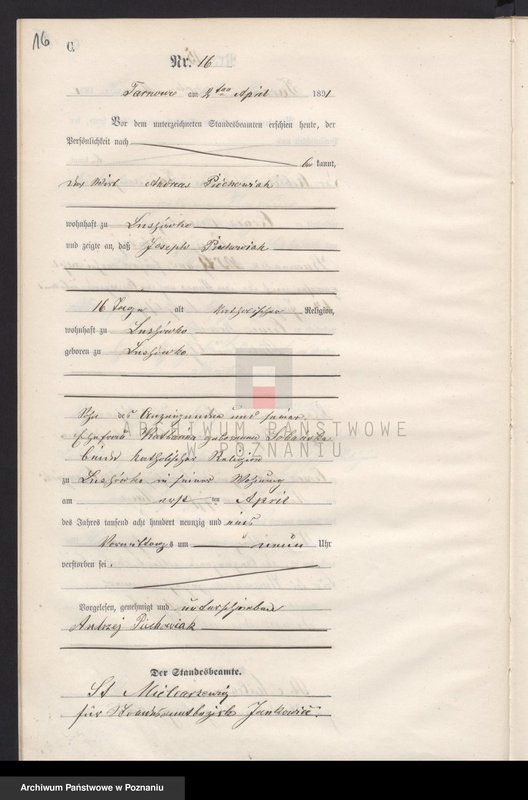 16
C.
Nr. 16
Tarnowo am 2ten April 1891
Vor dem unterzeichneten Standesbeamten erschien heute, der
Persönlichkeit nach
be kannt,
der Wirt Andreas Piechowiak
wohnhaft zu Lusówko
und zeigte an, daß Joseph Piechowiak
16 Tage alt katholischer Religion,
wohnhaft zu Lusówko
geboren zu Lusówko
Sohn des Anzeigenden und seiner
Ehefrau geborenen
beide katholischer Religion
zu Lusówko in seiner Wohnung
am ersten April
des Jahres tausend acht hundert neunzig und eins
Vormittags um neun Uhr
verstorben sei.
Vorgelesen, genehmigt und unterschrieben
Andrzej Piechowiak
Der Standesbeamte.
St
für Standesamtbezirk Jankowice.
ARCHIWUM PAŃSTWOWE
W POZNANIU
Archiwum Państwowe w Poznaniu